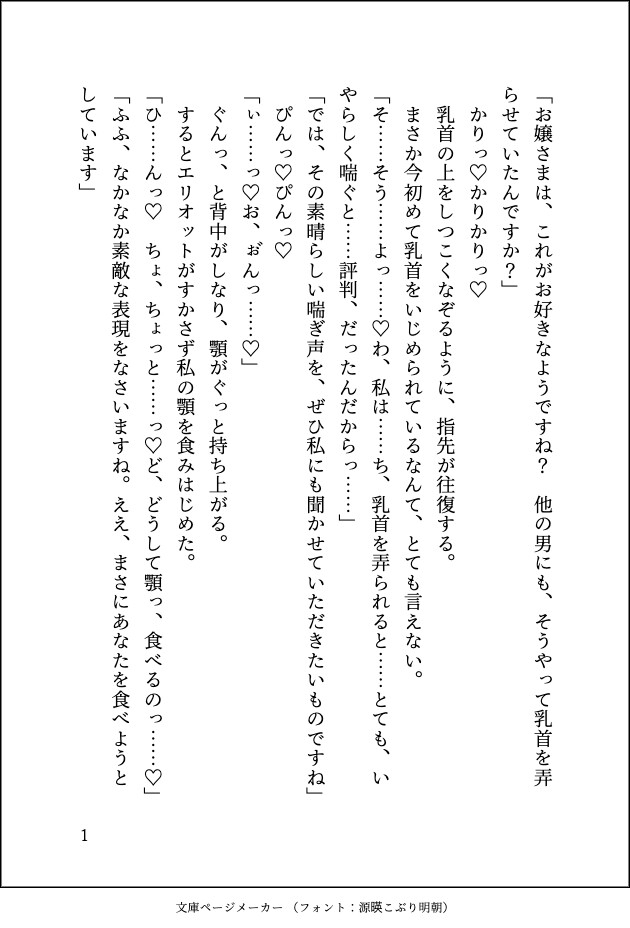 「お嬢さまは、これがお好きなようですね？　他の男にも、そうやって乳首を弄
らせていたんですか？」
　かりっ♡かりかりっ♡
　乳首の上をしつこくなぞるように、指先が往復する。
　まさか今初めて乳首をいじめられているなんて、とても言えない。
「そ……そう……よっ……♡わ、私は……ち、乳首を弄られると……とても、い
やらしく喘ぐと……評判、だったんだからっ……」
「では、その素晴らしい喘ぎ声を、ぜひ私にも聞かせていただきたいものですね」
　ぴんっ♡ぴんっ♡
「ぃ……っ♡お、ぉ゛んっ……♡」
　ぐんっ、と背中がしなり、顎がぐっと持ち上がる。
　するとエリオットがすかさず私の顎を食みはじめた。
「ひ……んっ♡　ちょ、ちょっと……っ♡ど、どうして顎っ、食べるのっ……♡」
「ふふ、なかなか素敵な表現をなさいますね。ええ、まさにあなたを食べようと
しています」
1
文庫ページメーカー（フォント：源暎こぶり明朝）